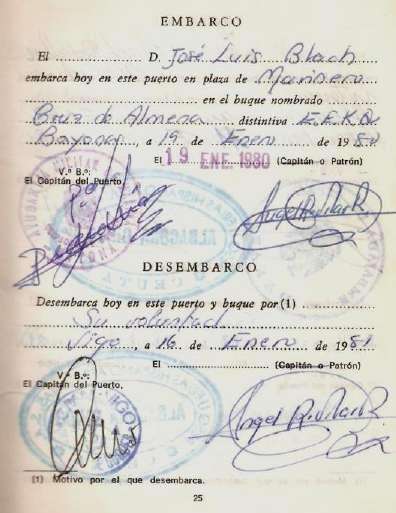 EMBARCO
El ............ D. José Luis Blach
embarca hoy en este puerto en plaza de Marinero
............ en el buque nombrado
Cruz de Almena distintiva E.E.K.
Bayona, a 19 de Enero de 1980
El 19 ENE. 1980 (Capitán o Patrón)
V.º B.º:
El Capitán del Puerto,
Angel Rivilar R.
DESEMBARCO
Desembarca hoy en este puerto y buque por (1)
Su voluntad
Vigo, a 16 de Enero de 1981
El ............ (Capitán o Patrón)
V.º B.º:
El Capitán del Puerto,
VIGO
Angel Rivilar R.
(1) Motivo por el que desembarca.
25